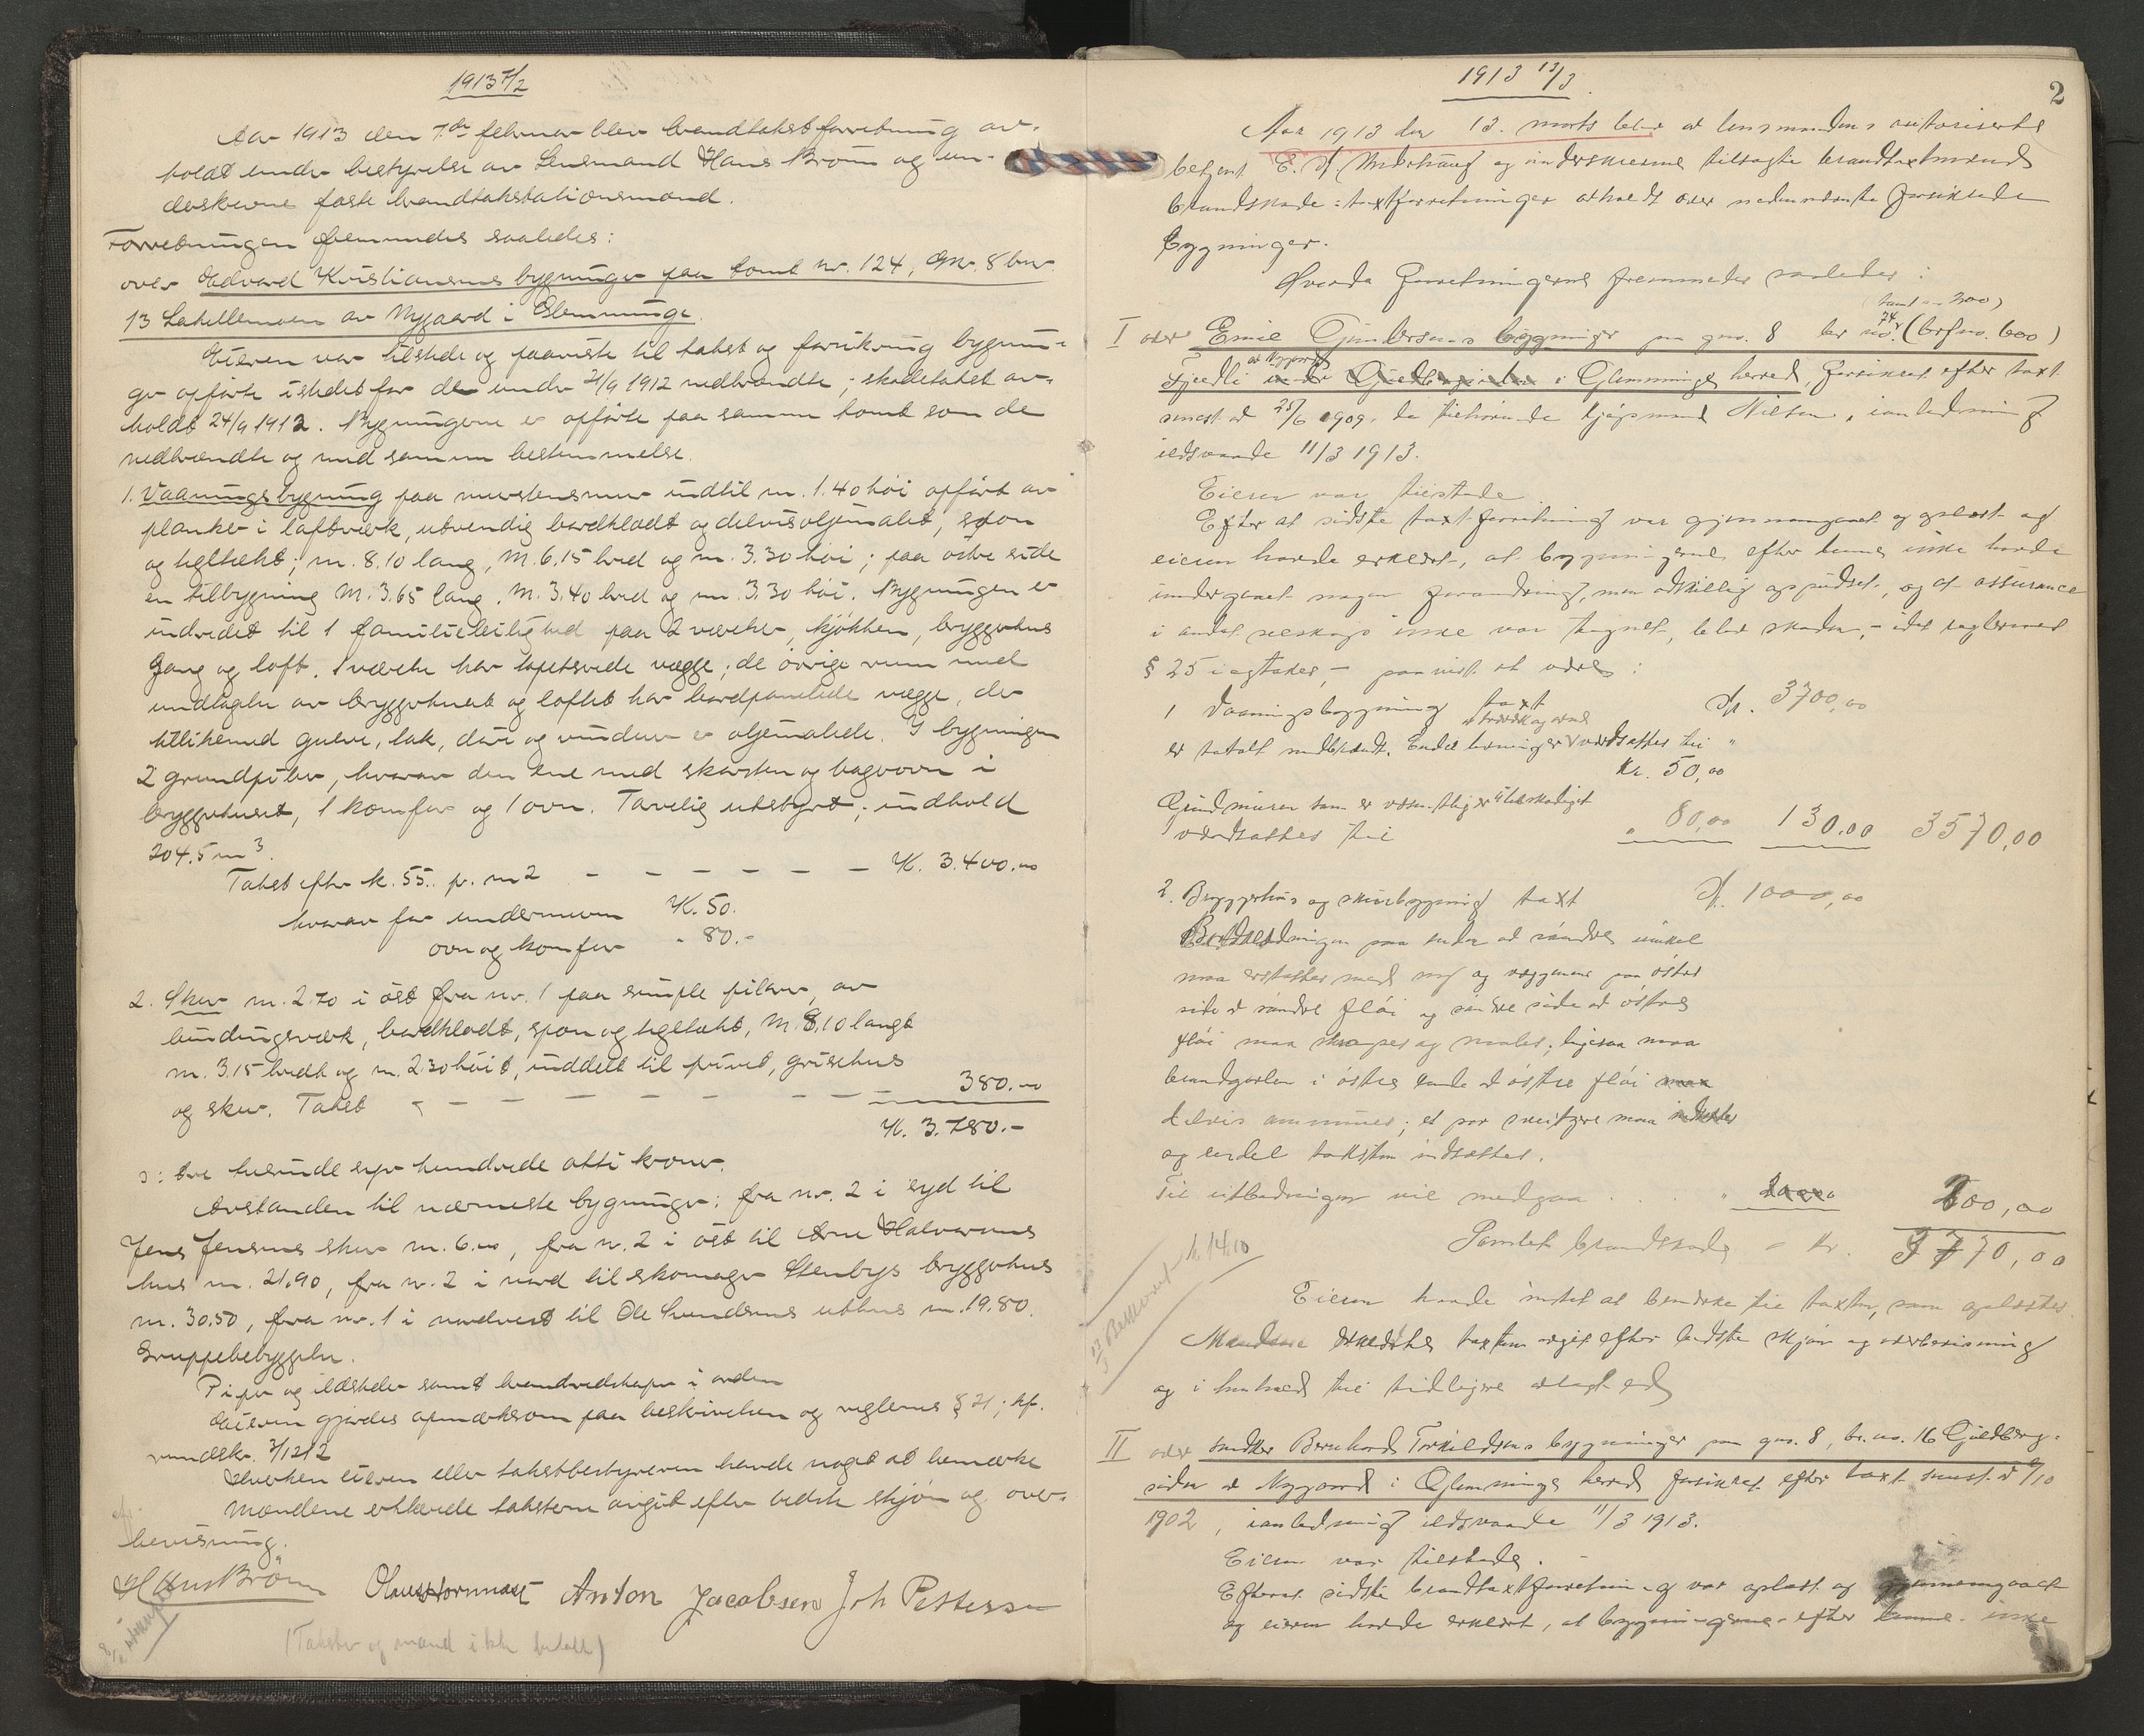 1913 7/2
Aar 1913 den 7de februar blev brandtakstforretning av-
holdt under bestyrelse av Lensmand Hans Brøm og un-
derskrevne faste brandtakstationsmænd.
Forretningen fremmedes saaledes:
over Edvard Kristiansens bygninger paa tomt nr. 124, gnr. 8 bnr.
13 Labellemoen av Nygaard i Glemminge.
Eieren var tilstede og paaviste til takst og forsikring bygnin-
ger opførte istedetfor de under 21/9 1912 nedbrændte; skadetakst av-
holdt 24/9 1912. Bygningerne er opførte paa samme tomt som de
nedbrændte og med samme bestemmelse.
1. Vaaningsbygning paa murstensmur indtil m. 1.40 høi opført av
planker i laftverk, utvendig bordklædt og delvis oljemalet, spon
og tegltækt; m. 8.10 lang, m. 6.15 bred og m. 3.30 høi; paa østre side
en tilbygning m. 3.65 lang, m. 3.40 bred og m. 3.30 høi. Bygningen er
indredet til 1 familieleilighed paa 2 værelser, kjøkken, bryggerhus
gang og loft. 1 værelse har tapetserede vægge; de øvrige rum med
undtagelse av bryggerhuset og loftet har bordpanelede vægge, der
tillikemed gulve, tak, døre og vinduer er oljemalede. I bygningen
2 grundpiber, hvorav den ene med skorsten og bagerovn i
bryggerhuset, 1 komfur og 1 ovn. Tarvelig utstyrt; indhold
204.5 m3.
Takst efter k. 55.. pr. m2 - - - - - - K. 3.400.00
hvorav for undermuren K. 50.
ovn og komfur " 80.-
2. Skur m. 2.70 i øst fra nr. 1 paa simple pilarer, av
bindingsverk, bordklædt, spon og tegltækt, m. 8.10 langt
m. 3.15 bredt og m. 2.30 høit, inddelt til privet, grisehus
og skur. Takst - - - - - - - - 380.00
K. 3.780.-
ɔ: tre tusinde syv hundrede otti kroner.
Avstanden til nærmeste bygninger: fra nr. 2 i syd til
Jens Jensens skur m. 6.00, fra nr. 2 i øst til Arne Halvorsens
hus m. 21.90, fra nr. 2 i nord til skomager Stenbys bryggerhus
m. 30.50, fra nr. 1 i nordvest til Ole Gundersens uthus m. 19.80.
Gruppebebyggelse.
Piper og ildsteder samt brandredskaper i orden
Eieren gjordes opmerksom paa beskrivelsen og reglernes § 21; kfr.
rundskr. 2/12 12
Hverken eieren eller takstbestyreren havde noget at bemærke
Mændene erklærede taksterne avgit efter bedste skjøn og over-
bevisning.
Hans Brøm Anton Jacobsen Joh Pettersen
(Takster og mænd ikke betalt)
1913 13/3
2
Aar 1913 den 13. marts blev av lensmandens autoriserte
betjent E. og underskrevne tilsagte brandtaxtmænd
brandskade-taxtforretninger avholdt over nedennævnte forsikrede
bygninger.
Hvorda forretningerne fremmedes saaledes:
(tomt nr 300)
I over Emil Gundersens bygninger paa gno. 8 br no. 74 (brfno. 600)
av Nygaard
Fjeldli i Glemminge herred, forsikret efter taxt
senest av 25/6 1909, da tilhørende kjøpmand Nilsen, i anledning
ildsvaade 11/3 1913.
Eieren var tilstede.
Efter at sidste taxtforretning var gjennemgaaet og oplæst og
eieren havde erklært, at bygningerne efter denne ikke havde
undergaaet nogen forandring, men adskillig oppudset, og at assurance
i andet selskap ikke var tegnet, blev skaden, - idet reglernes
§ 25 iagttages, - paavist at være:
1 Vaaningsbygning taxt Kr. 3700,00
er totalt nedbrændt. Endel levninger værdsættes til "
Kr. 50,00
Grundmuren som er væsentlig ubeskadiget
værdsættes til " 80,00 130,00 3570,00
2. Bryggerhus og skurbygning taxt Kr. 1000,00
Bordklædningen paa enden av søndre vinkel
maa erstattes med ny og væggene paa østre
side av søndre fløi og søndre side av østre
fløi maa skrapes og males; ligesaa maa
brandgavlen i østre ende av østre fløi
delvis ommures; et par
og endel taksten indsættes.
Til utbedringen vil medgaa . . . . " 200,00
Samlet brandskade = Kr. 3770,00
Eieren havde intet at bemerke til taxten, som oplæstes.
Mændene erklærte taxten avgit efter bedste skjøn og overbevisning
og i henhold til tidligere avlagt ed
13/3 Bekkevort k. 14,10
II over snedker Bernhard Torkildsens bygninger paa gno. 8, br. no. 16 Guldberg-
siden av Nygaard i Glemminge herred, forsikret efter taxt senest av 6/10
1902, i anledning ildsvaade 11/3 1913.
Eieren var tilstede.
Efterat sidste brandtaxtforretning var oplæst og gjennemgaaet
og eieren havde erklært, at bygningerne efter denne ikke